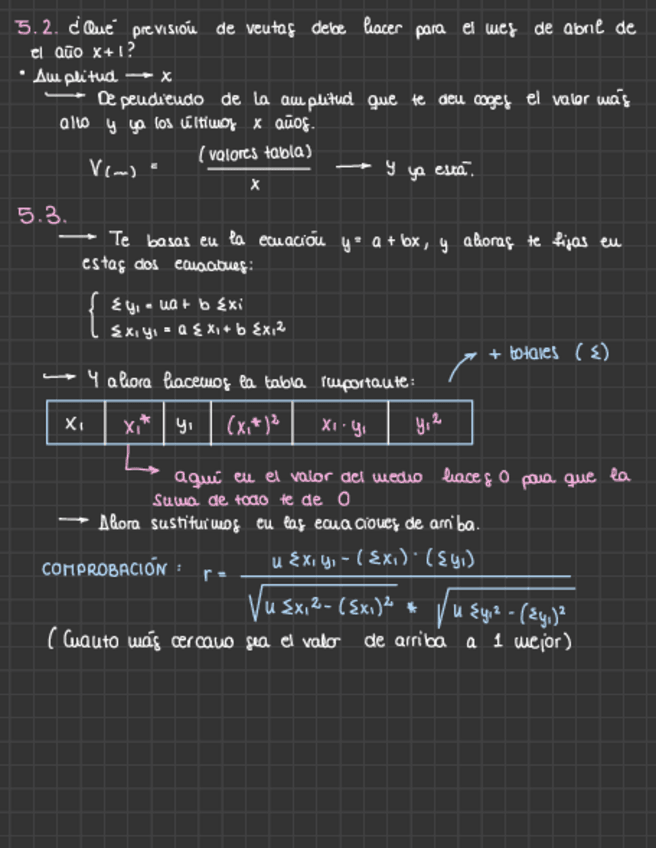 5.2. ¿Qué previsión de ventas debe hacer para el mes de abril de
el año x+1?
• Amplitud → x
→ Dependiendo de la amplitud que te den coges el valor más
alto y ya los últimos x años.
V(~) = (valores tabla) / x → y ya está.
5.3.
→ Te basas en la ecuación y = a + bx, y ahoras te fijas en
estas dos ecuaciones:
Σyi = na + b Σxi
Σxi yi = a Σxi + b Σxi²
+ totales (Σ)
→ Y ahora hacemos la tabla importante:
xi | xi* | yi | (xi*)² | xi · yi | yi²
aquí en el valor del medio haces 0 para que la
suma de todo te de 0
→ Ahora sustituimos en las ecuaciones de arriba.
COMPROBACIÓN: r = n Σxi yi - (Σxi) · (Σyi) / √n Σxi² - (Σxi)² * √n Σyi² - (Σyi)²
(Cuanto más cercano sea el valor de arriba a 1 mejor)